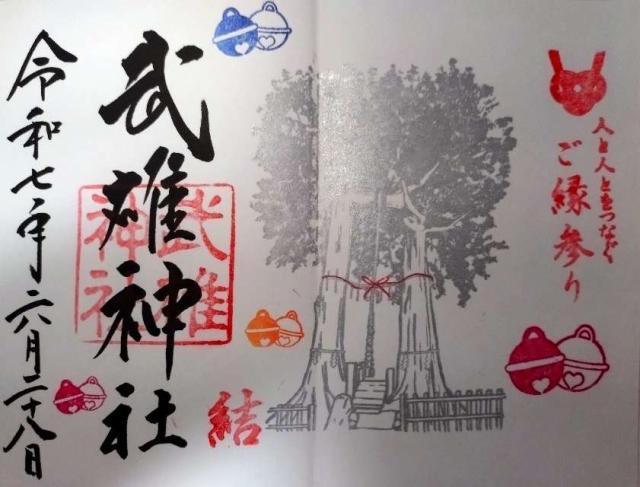 人と人とをつなぐ
ご縁参り
武雄神社
武雄
神社
結
令和七年六月二十八日